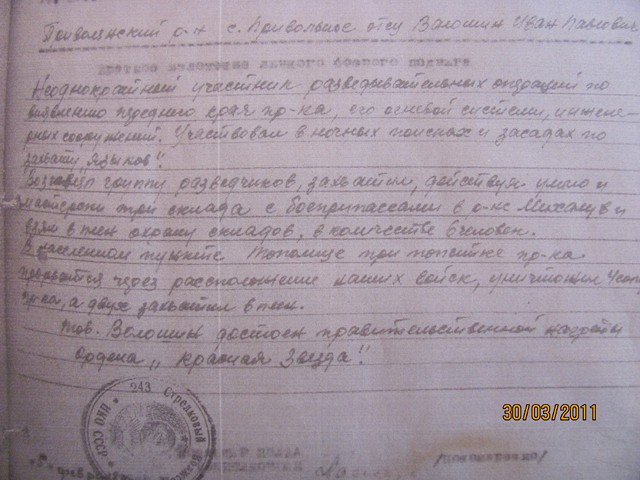 Привольнский р-н с. Привольное отец Волошин Иван Павлович
Краткое изложение личного боевого подвига
Неоднократный участник разведывательных операций по
выявлению переднего края пр-ка, его огневой системы, инжене-
рных сооружений. Участвовал в ночных поисках и засадах по
захвату „языков".
Возглавил группу разведчиков, захватил, действуя умно и
три склада с боеприпассами в р-не Михалув и
взял в плен охрану складов, в количестве 6 человек.
В населенном пункте при попытке пр-ка
прорваться через расположение наших войск, уничтожил 4 солд.
пр-ка, а двух захватил в плен.
Тов. Волошин достоин правительственной награды
Ордена „Красная Звезда".
243 Стрелковый
НКО СССР
полка
/Пономаренко/
февраля
30/03/2011